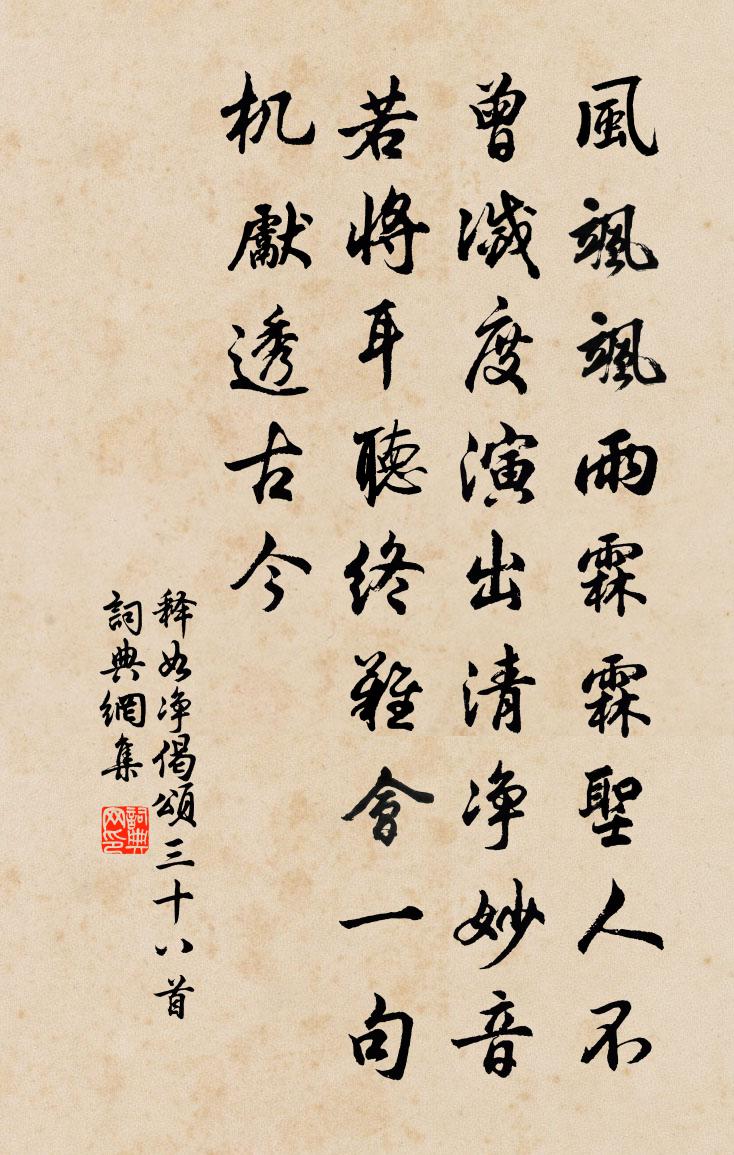 風颯颯雨霖霖聖人不
曾滅度演出清净妙音
若將耳聽終難會一句
机獻透古今
释如净偈頌三十八首
詞典網集
詞典网印